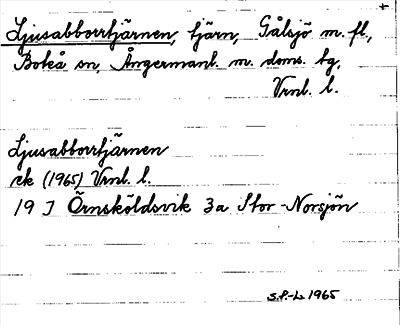 Ljusabborrtjärnen, tjärn, Gålsjö m. fl.,
Boteå sn, Ångermanl. m. doms. tg.
Vrnl. l.
Ljusabborrtjärnen
ek (1965) Vrnl. l.
19 J Örnsköldsvik 3a Stor-Norsjön
S.P.-L 1965